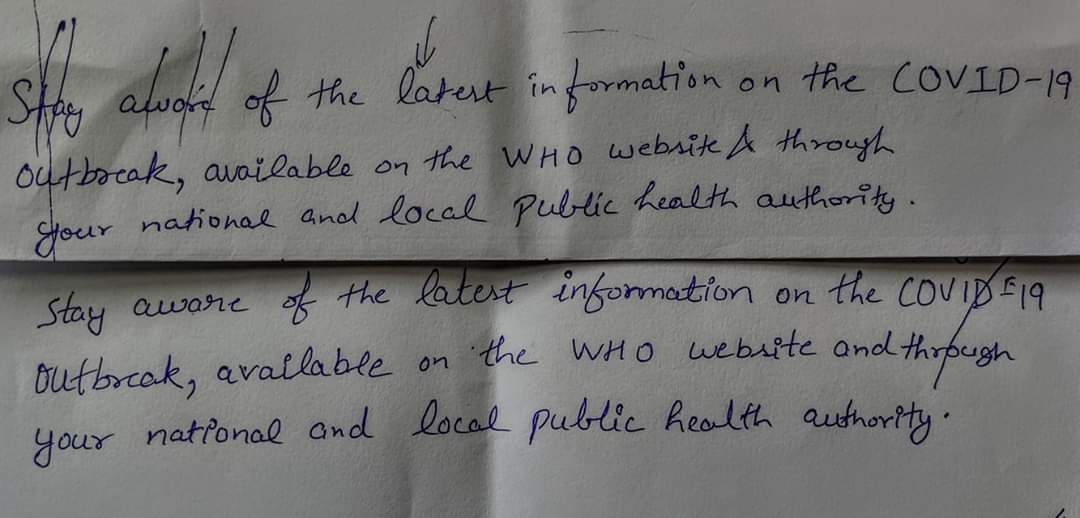 Stay of the latest information on the COVID-19
outbreak, available on the WHO website & through
your national and local public health authority.
Stay aware of the latest information on the COVID-19
outbreak, available on the WHO website and through
your national and local public health authority.